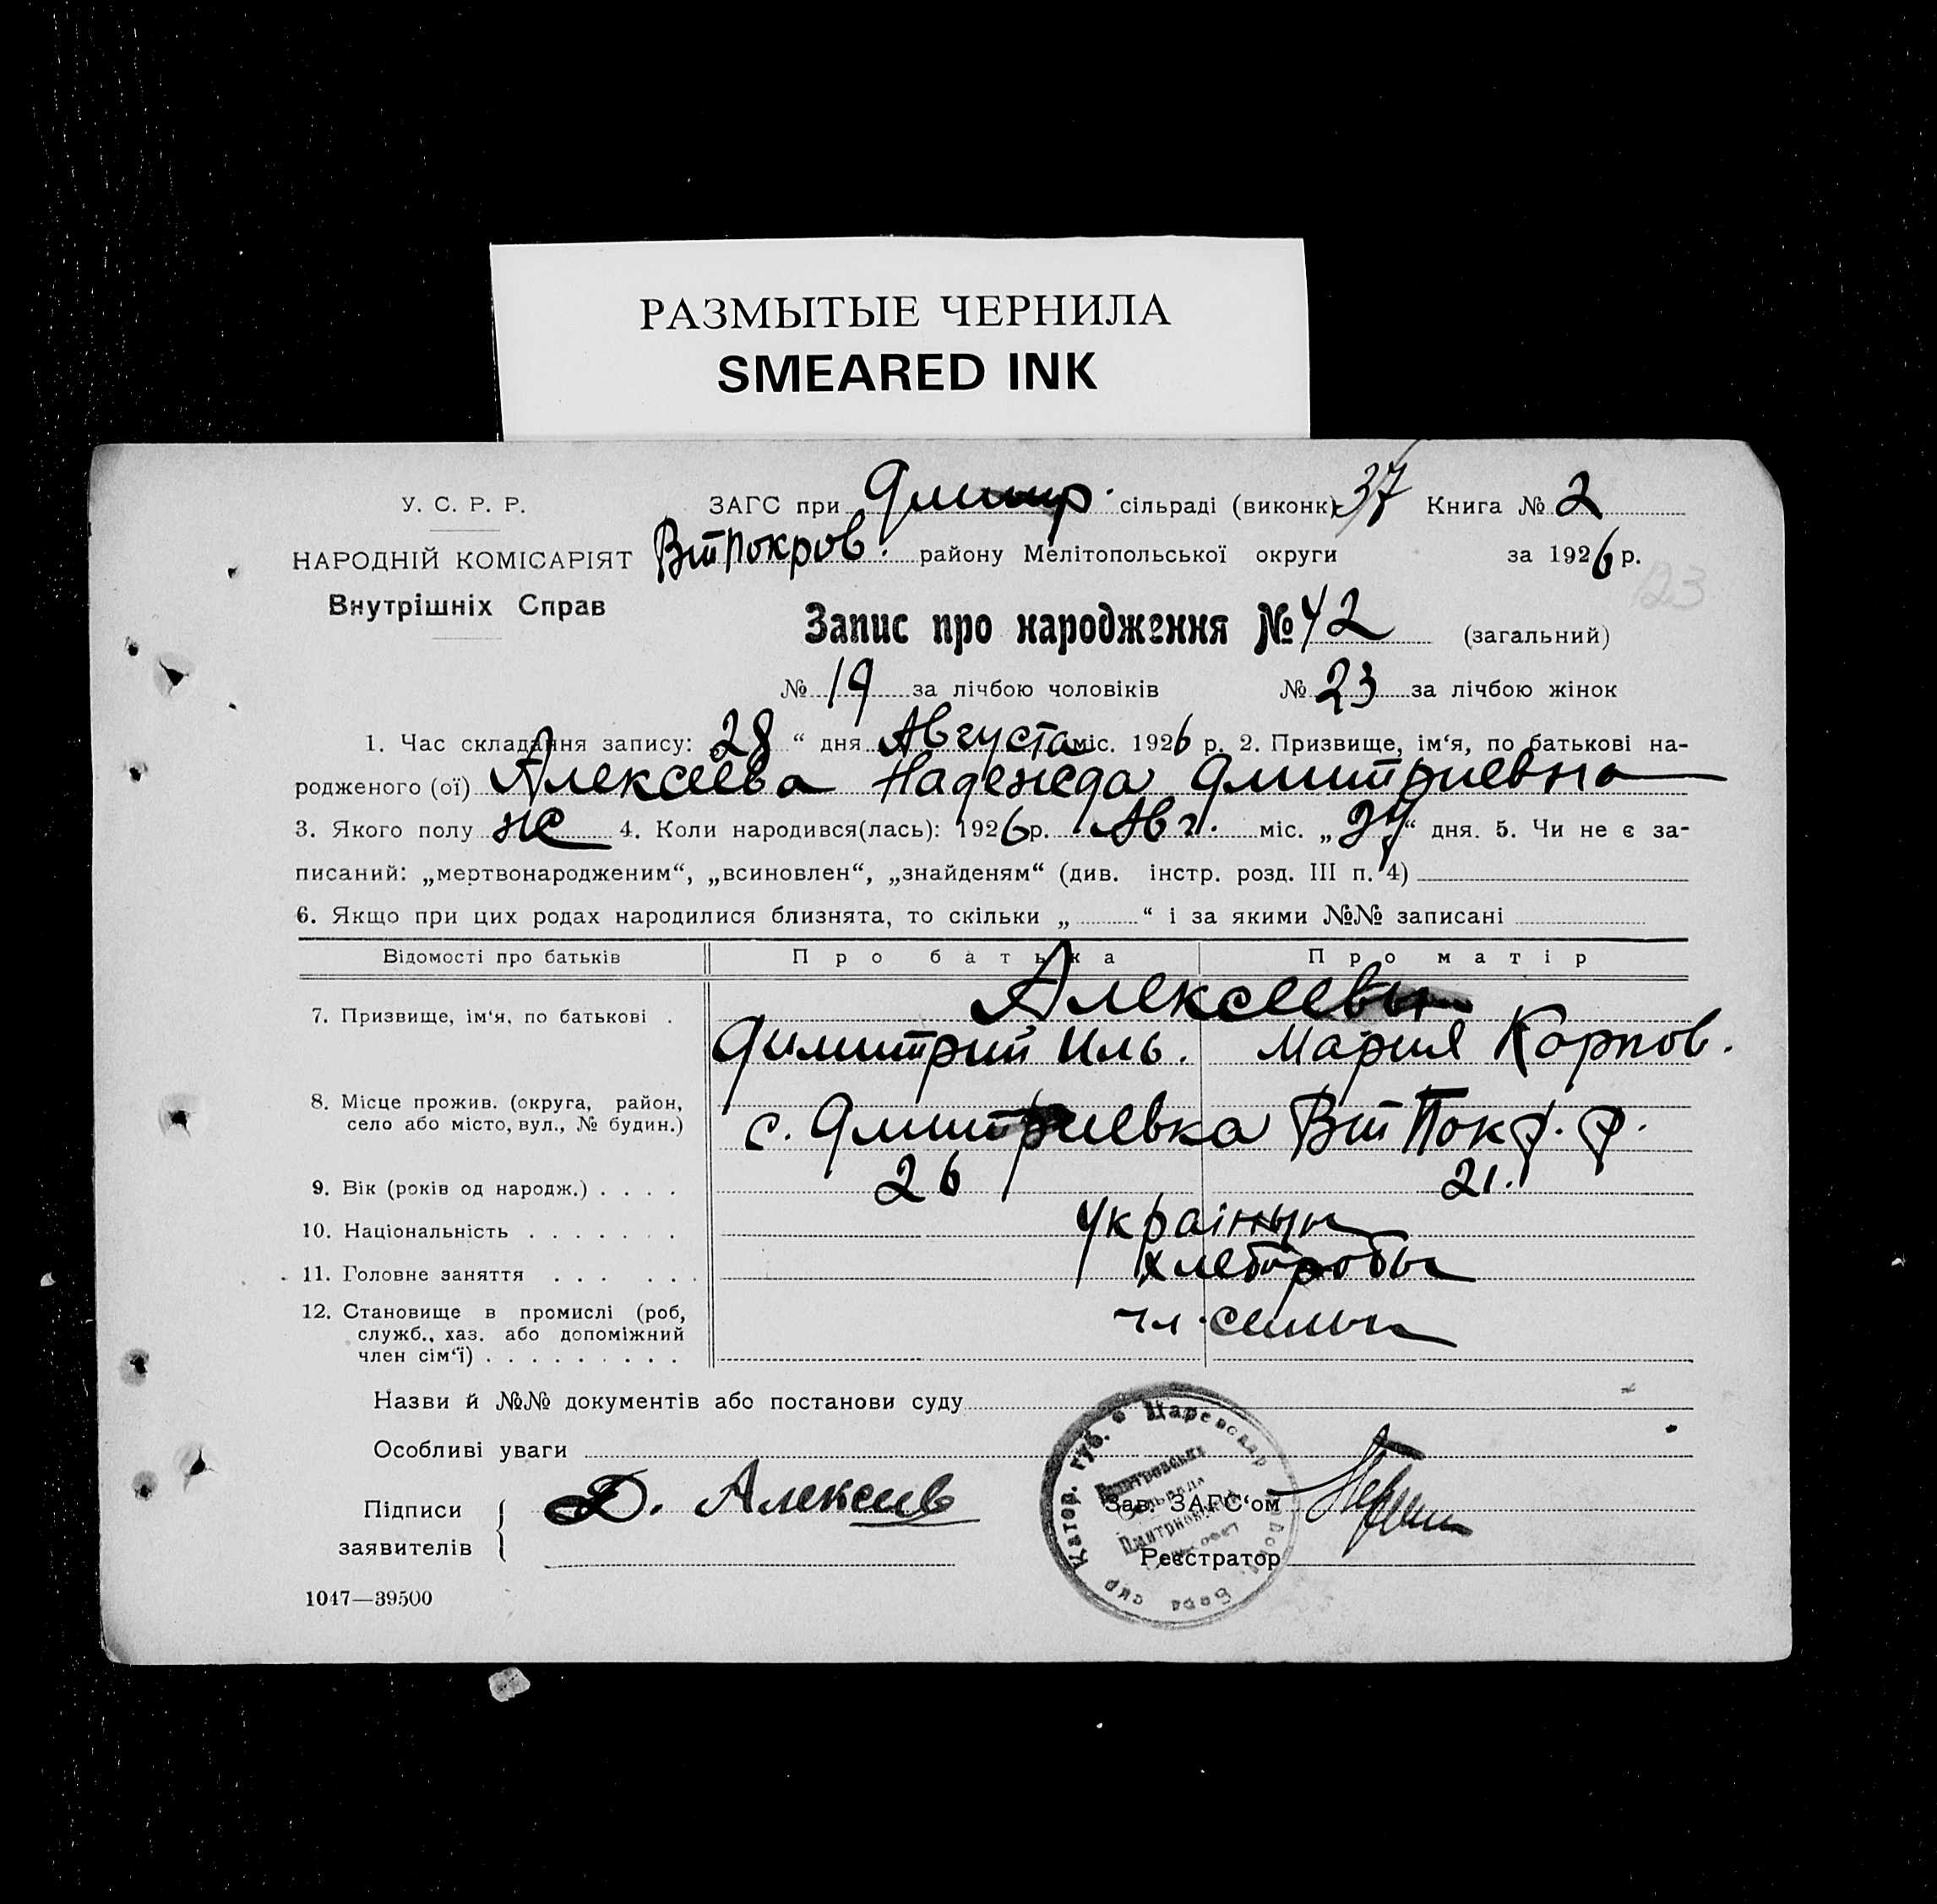 РАЗМЫТЫЕ ЧЕРНИЛА
SMEARED INK
У. С. Р. Р.
НАРОДНІЙ КОМІСАРІЯТ
Внутрішніх Справ
ЗАГС при Дмитр. сільраді (виконк) 37 Книга № 2
Вт Покров. району Мелітопольської округи за 1926 р.
123
Запис про народження № 42 (загальний)
№ 19 за лічбою чоловіків № 23 за лічбою жінок
1. Час складання запису: 28 “ дня Августа міс. 1926 р. 2. Призвище, ім‘я, по батькові на-
родженого (ої) Алексеева Надежда Дмитриевна
3. Якого полу же 4. Коли народився(лась): 1926 р. Авг. міс. „24“ дня. 5. Чи не є за-
писаний: „мертвонародженим“, „всиновлен“, „знайденям“ (див. інстр. розд. III п. 4)
6. Якщо при цих родах народилися близнята, то скільки „ “ і за якими №№ записані
Відомості про батьків Про батька Про матір
7. Призвище, ім‘я, по батькові . Алексеевы
Димитрий Иль. Мария Карпов.
8. Місце прожив. (округа, район,
село або місто, вул., № будин.) с. Дмитриевка Вт Покр. р.
9. Вік (років од народж.) . . . . 26 21.
10. Національність . . . . . . . Украінцы
11. Головне заняття . . . . . . Хлеборобы
12. Становище в промислі (роб,
служб., хаз. або допоміжний
член сім‘ї) . . . . . . . . . чл. семьи
Назви й №№ документів або постанови суду
Особливі уваги
Підписи
заявителів
Д. Алексеев
Зав. ЗАГС‘ом
Реєстратор
Катер. губ.
1047—39500